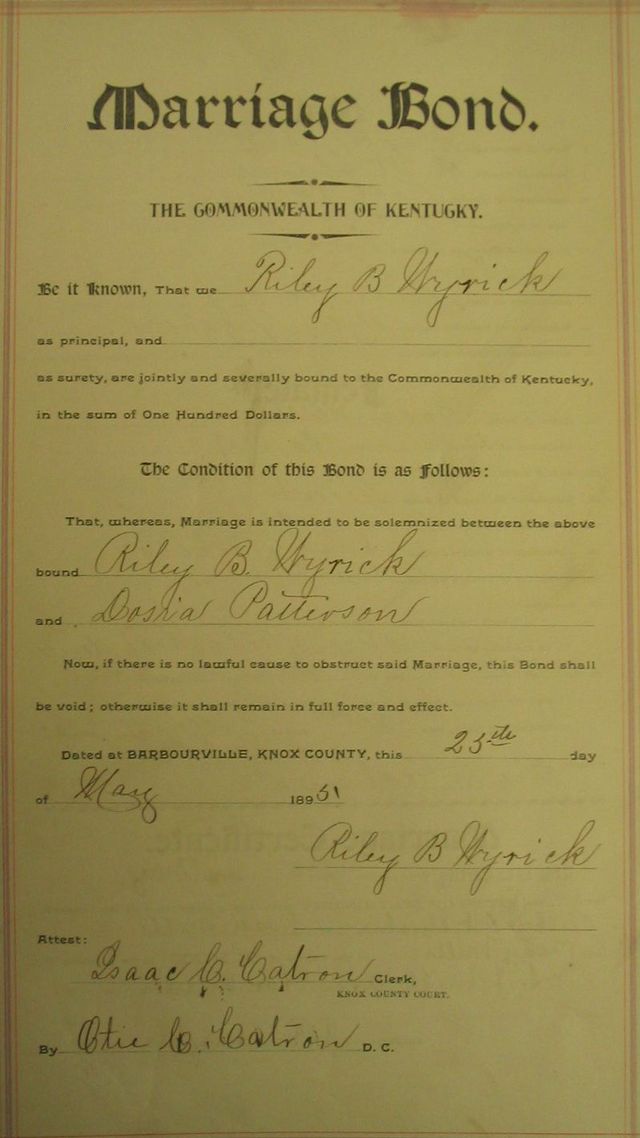 Marriage Bond.
THE COMMONWEALTH OF KENTUCKY.
Be it known, That we Riley B Wyrick
as principal, and
as surety, are jointly and severally bound to the Commonwealth of Kentucky,
in the sum of One Hundred Dollars.
The Condition of this Bond is as Follows:
That, whereas, Marriage is intended to be solemnized between the above
bound Riley B. Wyrick
and Dosia Patterson
Now, if there is no lawful cause to obstruct said Marriage, this Bond shall
be void; otherwise it shall remain in full force and effect.
Dated at BARBOURVILLE, KNOX COUNTY, this 25th day
of May 189
Riley B Wyrick
Attest:
Isaac C. Catron Clerk,
KNOX COUNTY COURT.
By Otie C. Catron D. C.